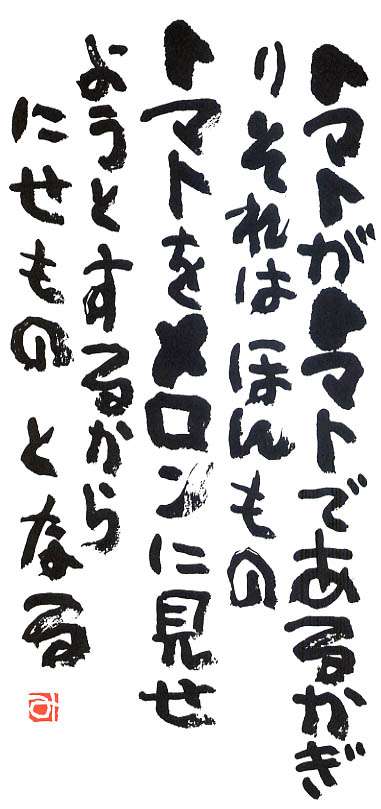 トマトがトマトであるかぎ
りそれはほんもの
トマトをメロンに見せ
ようとするから
にせものとなる